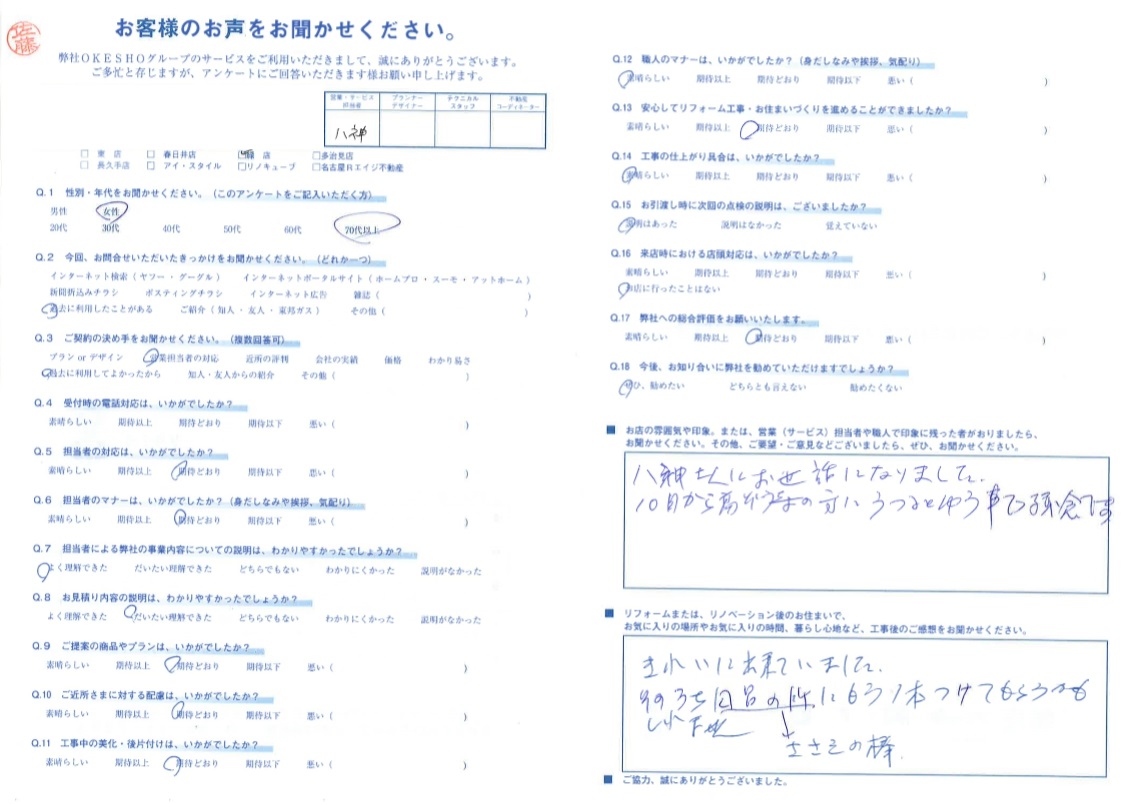 佐藤
お客様のお声をお聞かせください。
弊社OKESHOグループのサービスをご利用いただきまして、誠にありがとうございます。
ご多忙と存じますが、アンケートにご回答いただきます様お願い申し上げます。
営業・サービス担当者 プランナーデザイナー テクニカルスタッフ 不動産コーディネーター
八神
□ 東 店 □ 春日井店 □緑 店 □多治見店
□ 長久手店 □ アイ・スタイル □リノキューブ □名古屋Rエイジ不動産
Q.1 性別・年代をお聞かせください。（このアンケートをご記入いただく方）
男性 女性
20代 30代 40代 50代 60代 70代以上
Q.2 今回、お問合せいただいたきっかけをお聞かせください。（どれか一つ）
インターネット検索（ ヤフー ・ グーグル ） インターネットポータルサイト（ ホームプロ ・ スーモ ・ アットホーム ）
新聞折込みチラシ ポスティングチラシ インターネット広告 雑誌（ ）
過去に利用したことがある ご紹介（ 知人 ・ 友人 ・ 東邦ガス ） その他（ ）
Q.3 ご契約の決め手をお聞かせください。（複数回答可）
プラン or デザイン 営業担当者の対応 近所の評判 会社の実績 価格 わかり易さ
過去に利用してよかったから 知人・友人からの紹介 その他（ ）
Q.4 受付時の電話対応は、いかがでしたか？
素晴らしい 期待以上 期待どおり 期待以下 悪い（ ）
Q.5 担当者の対応は、いかがでしたか？
素晴らしい 期待以上 期待どおり 期待以下 悪い（ ）
Q.6 担当者のマナーは、いかがでしたか？（身だしなみや挨拶、気配り）
素晴らしい 期待以上 期待どおり 期待以下 悪い（ ）
Q.7 担当者による弊社の事業内容についての説明は、わかりやすかったでしょうか？
よく理解できた だいたい理解できた どちらでもない わかりにくかった 説明がなかった
Q.8 お見積り内容の説明は、わかりやすかったでしょうか？
よく理解できた だいたい理解できた どちらでもない わかりにくかった 説明がなかった
Q.9 ご提案の商品やプランは、いかがでしたか？
素晴らしい 期待以上 期待どおり 期待以下 悪い（ ）
Q.10 ご近所さまに対する配慮は、いかがでしたか？
素晴らしい 期待以上 期待どおり 期待以下 悪い（ ）
Q.11 工事中の美化・後片付けは、いかがでしたか？
素晴らしい 期待以上 期待どおり 期待以下 悪い（ ）
Q.12 職人のマナーは、いかがでしたか？（身だしなみや挨拶、気配り）
素晴らしい 期待以上 期待どおり 期待以下 悪い（ ）
Q.13 安心してリフォーム工事・お住まいづくりを進めることができましたか？
素晴らしい 期待以上 期待どおり 期待以下 悪い（ ）
Q.14 工事の仕上がり具合は、いかがでしたか？
素晴らしい 期待以上 期待どおり 期待以下 悪い（ ）
Q.15 お引渡し時に次回の点検の説明は、ございましたか？
説明はあった 説明はなかった 覚えていない
Q.16 来店時における店頭対応は、いかがでしたか？
素晴らしい 期待以上 期待どおり 期待以下 悪い（ ）
お店に行ったことはない
Q.17 弊社への総合評価をお願いいたします。
素晴らしい 期待以上 期待どおり 期待以下 悪い（ ）
Q.18 今後、お知り合いに弊社を勧めていただけますでしょうか？
ぜひ、勧めたい どちらとも言えない 勧めたくない
■ お店の雰囲気や印象、または、営業（サービス）担当者や職人で印象に残った者がおりましたら、
お聞かせください。その他、ご要望・ご意見などございましたら、ぜひ、お聞かせください。
八神さんにお世話になりまして、
10月から の方にうつるとゆう事で残念です
■ リフォームまたは、リノベーション後のお住まいで、
お気に入りの場所やお気に入りの時間、暮らし心地など、工事後のご感想をお聞かせください。
きれいに出来ていました。
そのうち にもう1本つけてもらうかも
しれません
ささえの棒
■ ご協力、誠にありがとうございました。